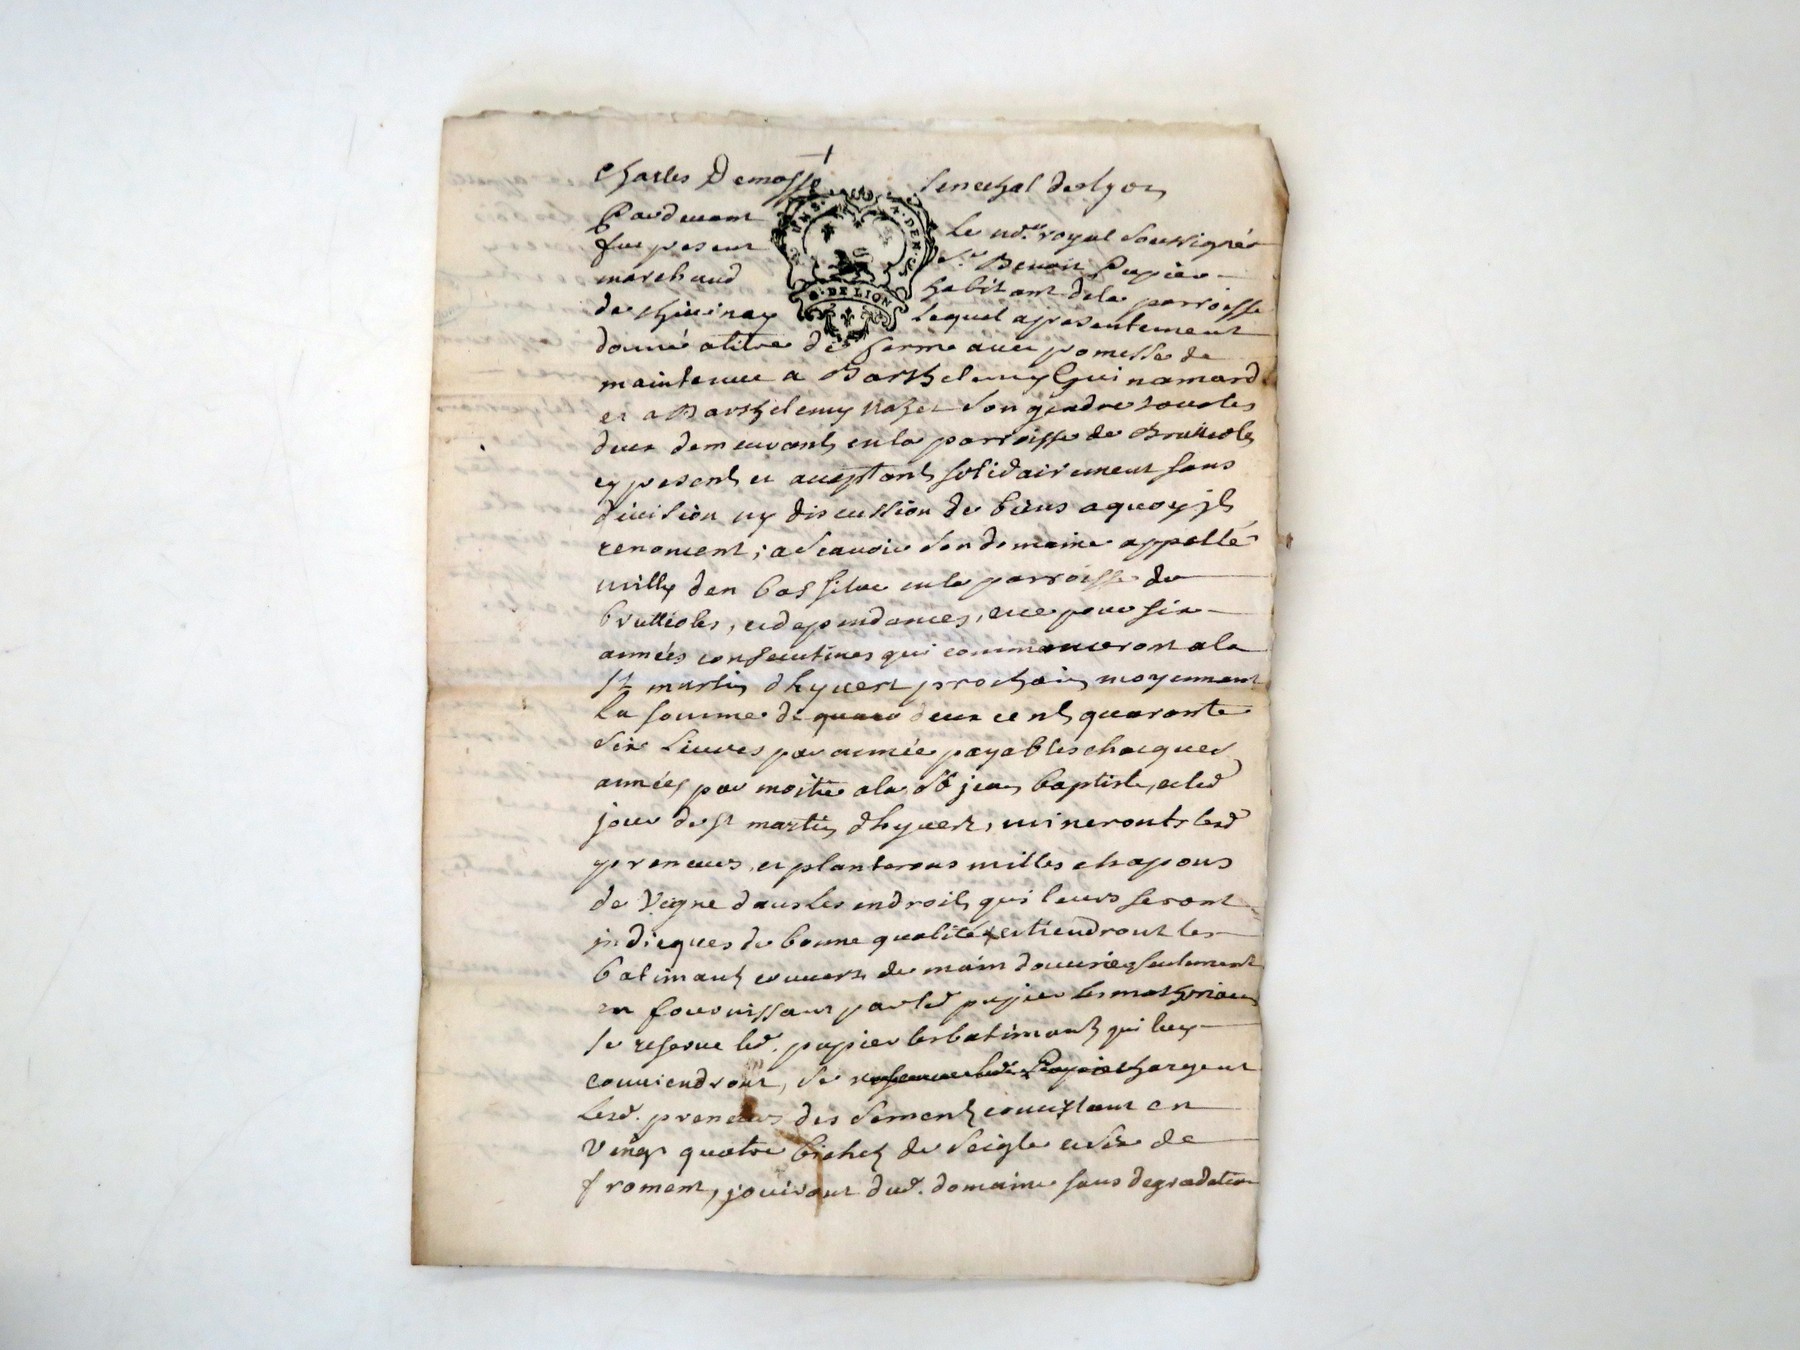 Charles Demasse Senechal de lyon
Pardevant le no.re royal soussigné
fut present S.r Benoit Papier
marchand habitant dela parroisse
de Thivinay lequel apresentement
donné atitre de ferme avec promesse de
maintenue a Barthelemy Guinamard
et a Barthelemy son gendre tous les
deux demeurants enla parroisse de Brullioles
cy presents et acceptants solidairement sans
division ny discussion de biens aquoy jls
renoncent; a scavoir son domaine appellé
milly den bas situé enla parroisse de
brullioles, et dependances, et ce pour six
années consecutives qui commenceront ala
St martin dhyvert prochain moyennant
la somme de deux cents quarante
six livres par année payables chacques
années par moitié ala St jean baptiste, et led
jour de St martin dhyvert, mineronts lesd
preneurs, et planteront milles chapons
de Vigne dans les endroits qui leurs seront
jndicques de bonne qualité et tiendront les
batimants couverts de main douvrier seulement
en fournissant par led papier les matheriaux
se reserve led. papier les batimants qui luy
conviendront, se chargent
lesd. preneurs des sements consistant en
Vingt quatre bichets de seigle et six de
froment, jouiront dud. domaine sans degradation
DE LION